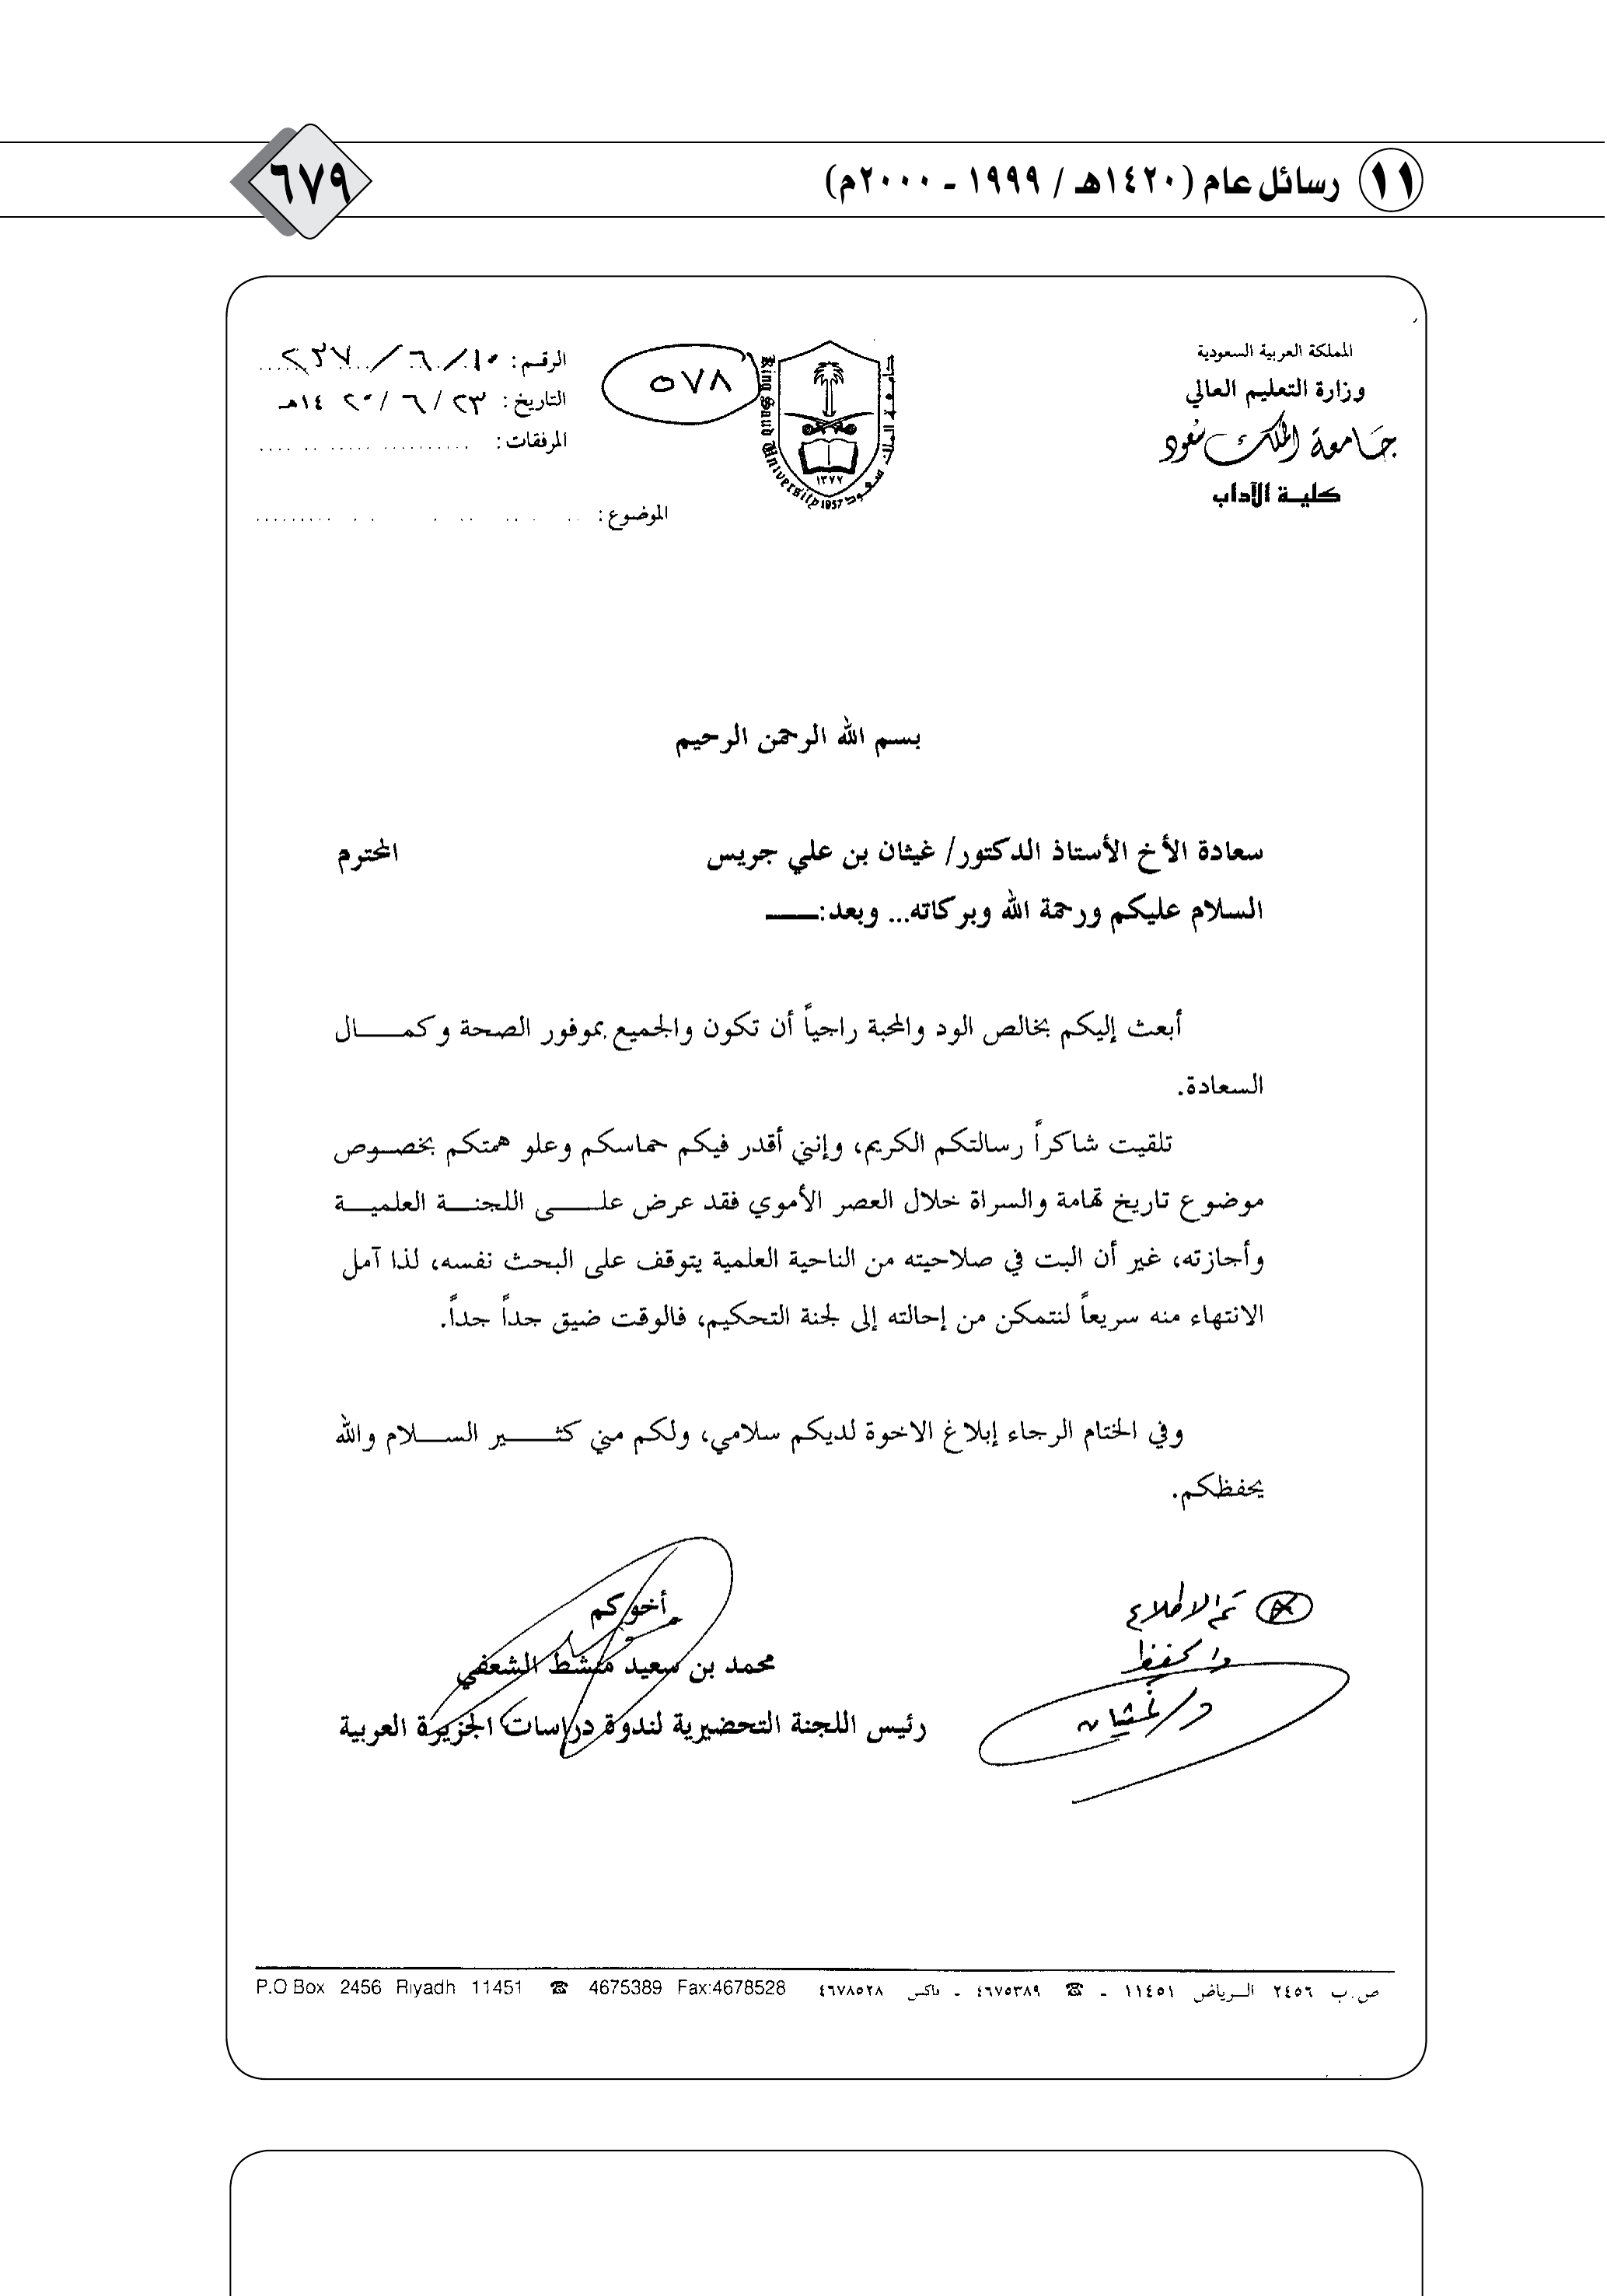 ١١ رسائل عام (١٤٢٠هـ / ١٩٩٩ ـ ٢٠٠٠م)
٦٧٩
المملكة العربية السعودية
وزارة التعليم العالي
جامعة الملك سعود
كلية الآداب
جامعة الملك سعود
King Saud University
١٣٧٧
1957
٥٧٨
الرقم: ٢٣٧/٦/١٠
التاريخ: ٢٣/٦/١٤٢٠هـ
المرفقات:
الموضوع:
بسم الله الرحمن الرحيم
سعادة الأخ الأستاذ الدكتور/ غيثان بن علي جريس المحترم
السلام عليكم ورحمة الله وبركاته... وبعد:
أبعث إليكم بخالص الود والمحبة راجياً أن تكون والجميع بموفور الصحة وكمال
السعادة.
تلقيت شاكراً رسالتكم الكريم، وإنني أقدر فيكم حماسكم وعلو همتكم بخصوص
موضوع تاريخ تهامة والسراة خلال العصر الأموي فقد عرض على اللجنة العلمية
وأجازته، غير أن البت في صلاحيته من الناحية العلمية يتوقف على البحث نفسه، لذا آمل
الانتهاء منه سريعاً لنتمكن من إحالته إلى لجنة التحكيم، فالوقت ضيق جداً جداً.
وفي الختام الرجاء إبلاغ الاخوة لديكم سلامي، ولكم مني كثير السلام والله
يحفظكم.
أخوكم
محمد بن سعيد منشط الشعفي
رئيس اللجنة التحضيرية لندوة دراسات الجزيرة العربية
تم الاطلاع
والحفظ
د/ غيثان
ص.ب ٢٤٥٦ الرياض ١١٤٥١ ـ ☎ ٤٦٧٥٣٨٩ ـ فاكس ٤٦٧٨٥٢٨
P.O Box 2456 Riyadh 11451 ☎ 4675389 Fax:4678528